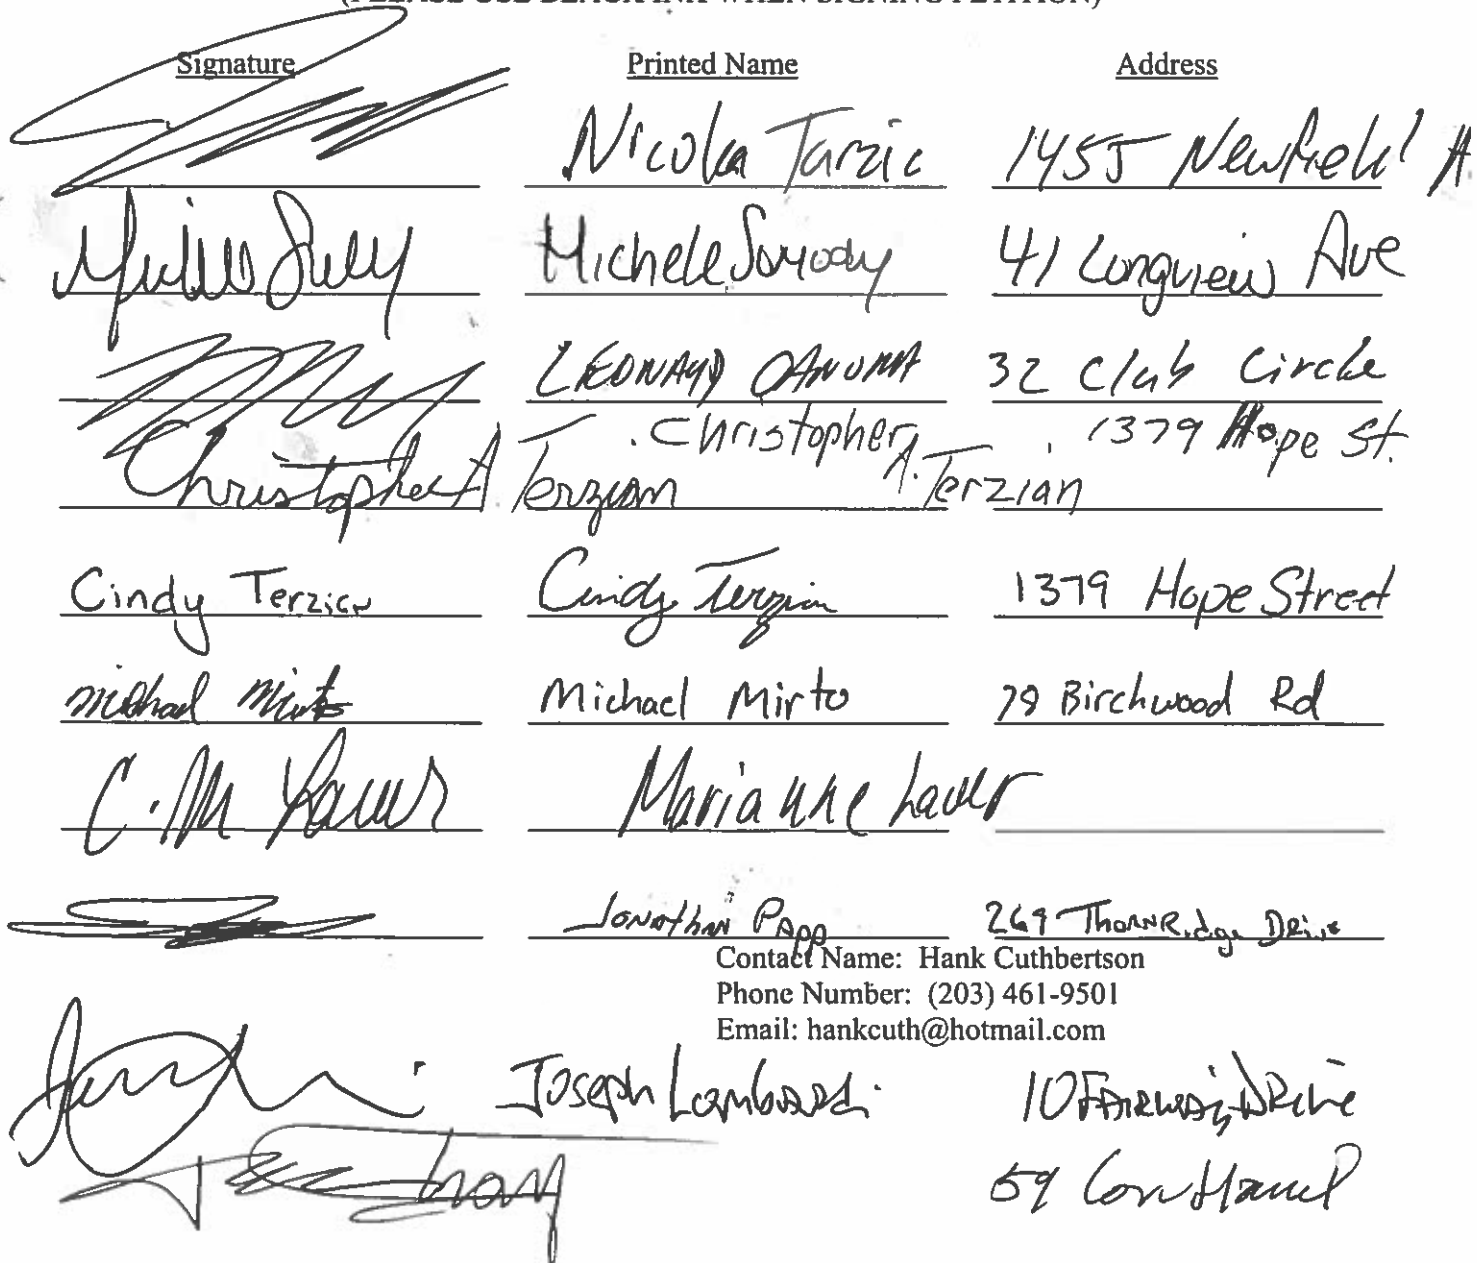 (PLEASE USE BLACK INK WHEN SIGNING PETITION)
Signature Printed Name Address
Nicola Tarzic 1455 Newfield A
Michele Somody 41 Longview Ave
32 Club Circle
Christopher A Terzian Christopher A. Terzian 1379 Hope St.
Cindy Terzian Cindy Terzian 1379 Hope Street
Michael Mirto Michael Mirto 78 Birchwood Rd
C. M Lauer Marianne Lauer
Jonathan Papp 269 ThornRidge Drive
Contact Name: Hank Cuthbertson
Phone Number: (203) 461-9501
Email: hankcuth@hotmail.com
Joseph Lombardi 10 Fairway Drive
59